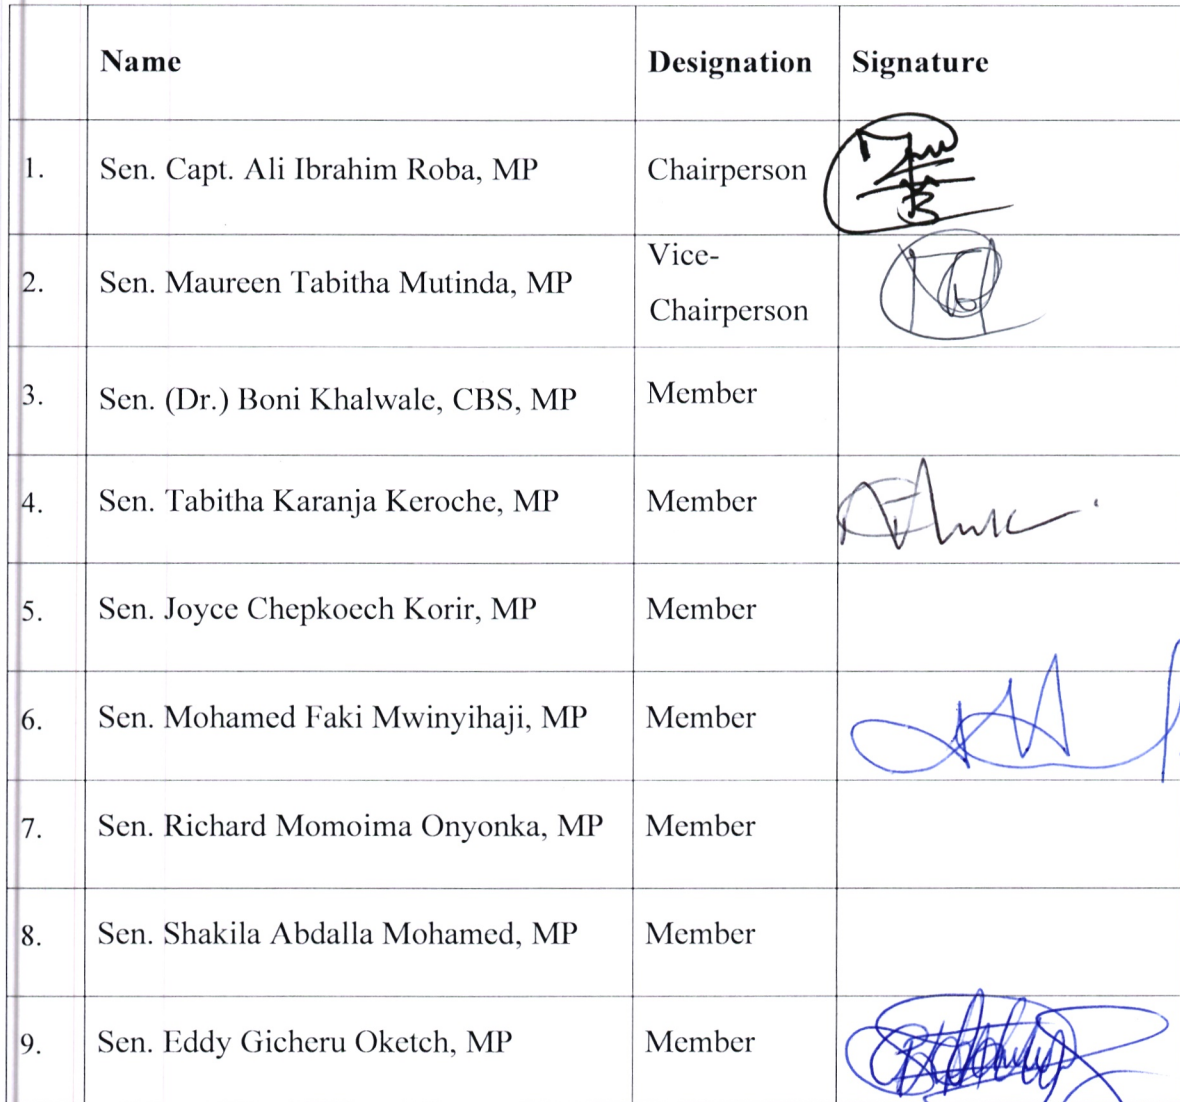 Name Designation Signature
1. Sen. Capt. Ali Ibrahim Roba, MP Chairperson
2. Sen. Maureen Tabitha Mutinda, MP Vice-
Chairperson
3. Sen. (Dr.) Boni Khalwale, CBS, MP Member
4. Sen. Tabitha Karanja Keroche, MP Member
5. Sen. Joyce Chepkoech Korir, MP Member
6. Sen. Mohamed Faki Mwinyihaji, MP Member
7. Sen. Richard Momoima Onyonka, MP Member
8. Sen. Shakila Abdalla Mohamed, MP Member
9. Sen. Eddy Gicheru Oketch, MP Member